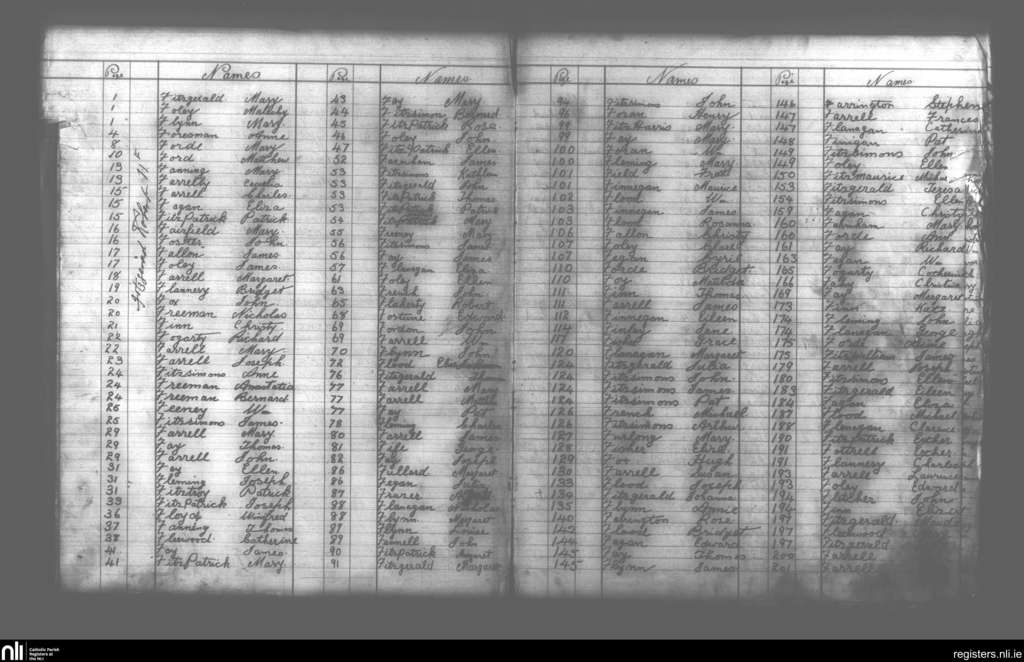 Page Names
1 Fitzgerald Mary
1 Foley
1 Flynn Mary
4 Foresman Anne
8 Forde Mary
10 Ford Matthew
13 Fanning Mary
13 Farrelly Cecelia
15 Farrell Charles
15 Fagan Eliza
15 FitzPatrick Patrick
16 Fairfield Mary
16 Foster John
17 Fallon James
17 Foley James
18 Farrell Margaret
19 Flannery Bridget
20 Fox John
20 Freeman Nicholas
21 Finn Christy
22 Fogarty Richard
22 Farrell Mary
23 Farrell Joseph
24 Fitzsimons Anne
24 Freeman Anastatia
24 Freeman Bernard
25 Feeney Wm
25 Fitzsimons James
29 Farrell Mary
29 Fay Thomas
29 Farrell John
31 Fay Ellen
31 Fleming Joseph
31 Fitzroy Patrick
33 FitzPatrick Joseph
36 Floyd Winifred
37 Fanning
38 Fleewood Catherine
41 Fay James
41 FitzPatrick Mary
Page Names
43 Fay Mary
44 Fitzsimon Bernard
45 FitzPatrick Rose
46 Foley John
47 FitzPatrick Ellen
52 Farnham James
53 Fitzsimons Kathleen
53 Fitzgerald John
53 FitzPatrick Thomas
53 Patrick
54 Mary
55 Feeney Mary
56 Fitzsimons
56 Fay James
57 Flanigan Eliza
61 Foley Ellen
63 French
65 Flaherty Robert
68 Fortune Edward
69 Fordon John
69 Farrell Wm
70 Flynn John
72 Flood
76 Fitzgerald
77 Farrell Mary
77 Farrell
77 Fay Pat
78 Fleming Charles
80 Farrell James
81 Fife George
82 Joseph
86 Fullard Margaret
86 Fegan
87 Frazer
88 Flanagan Nicholas
88 Flynn Margaret
89 Flynn
89 Farnell John
90 FitzPatrick
91 Fitzgerald Margaret
Page Names
94 Fitzsimons John
96 Foran Henry
99 FitzHarris Mary
99 Mary
100 Foran Wm
100 Fleming Mary
101 Field Fred
101 Finnegan Maurice
102 Flood Wm
103 Finnegan James
103 Flood Rosanna
106 Fallon Christy
107 Foley
107 Fegan
110 Forde Bridget
110 Foy Matilda
111 Finn Thomas
111 Farrell James
112 Finnegan Eileen
114 Finlay Jane
117 Grace
120 Flanagan Margaret
124 Fitzgerald Julia
124 Fitzsimons John
124 Fitzsimons James
124 Fitzsimons Pat
126 French Michael
126 Fitzsimons Arthur
127 Furlong Mary
128 Fisher
129 Fox Hugh
130 Farrell
133 Flood Joseph
134 Fitzgerald Johanna
135 Flynn Annie
140 Rose
142 Flood Bridget
144 Fagan Edward
145 Fay Thomas
145 Flynn James
Page Names
146 Farrington Stephen
147 Farrell Frances
147 Flanagan Catherine
148 Finigan Pat
149 Fitzsimons John
149 Foley Ellen
150 FitzMaurice
153 Fitzgerald Teresa
154 Fitzsimons Ellen
159 Fagan Christy
160 Farnham Mary
160 Forde
161 Fay Richard
163 Fagan Wm
165 Fogarty Catherine
166 Fahy Christina
169 Fay Margaret
173 Finn Kate
174 Fleming John
174 Flanagan George
175 Forde
175 Fitzwilliam James
179 Farrell Joseph
180 Fitzsimons Ellen
184 Fitzgerald Eileen
184 Fagan
187 Flood Michael
188 Flanagan Clarence
190 FitzPatrick Esther
191 Fottrell Esther
191 Flannery Charles
193 Farrell Lawrence
193 Foley George
194 John
194 Finn
197 Fitzgerald
197
197 Fitzgerald
200 Farrell
201 Farrell
nli Catholic Parish
Registers at
the NLI
registers.nli.ie